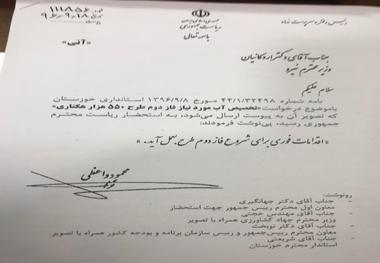 رئیس دفتر و سرپرست نهاد
ریاست جمهوری
باسمه تعالی
۱۱۱۸۵۶
«آنی»
جناب آقای دکتر اردکانیان
وزیر محترم نیرو
سلام علیکم
نامه شماره ۴۴/۱/۳۲۴۹۸ مورخ ۱۳۹۶/۹/۸ استانداری خوزستان
باموضوع درخواست «تخصیص آب مورد نیاز فاز دوم طرح ۵۵۰ هزار هکتاری»
که تصویر آن به پیوست ارسال می‌شود، به استحضار ریاست محترم
جمهوری رسید، پی‌نوشت فرمودند:
«اقدامات فوری برای شروع فاز دوم طرح، بعمل آید.»
محمود واعظی
رونوشت:
جناب آقای دکتر جهانگیری
معاون اول محترم رییس جمهور جهت استحضار
جناب آقای مهندس حجتی
وزیر محترم جهاد کشاورزی همراه با تصویر
جناب آقای دکتر نوبخت
معاون محترم رییس‌جمهور و رییس سازمان برنامه و بودجه کشور همراه با تصویر
جناب آقای شریعتی
استاندار محترم خوزستان